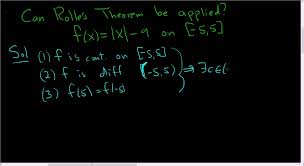 Can Rolle's Theorem be applied?
f(x)=|x|-9 on [-5,5]
Sol (1) f is cont. on [-5,5]
(2) f is diff (-5,5) ⇒ ∃c∈(-
(3) f(5)=f(-5)